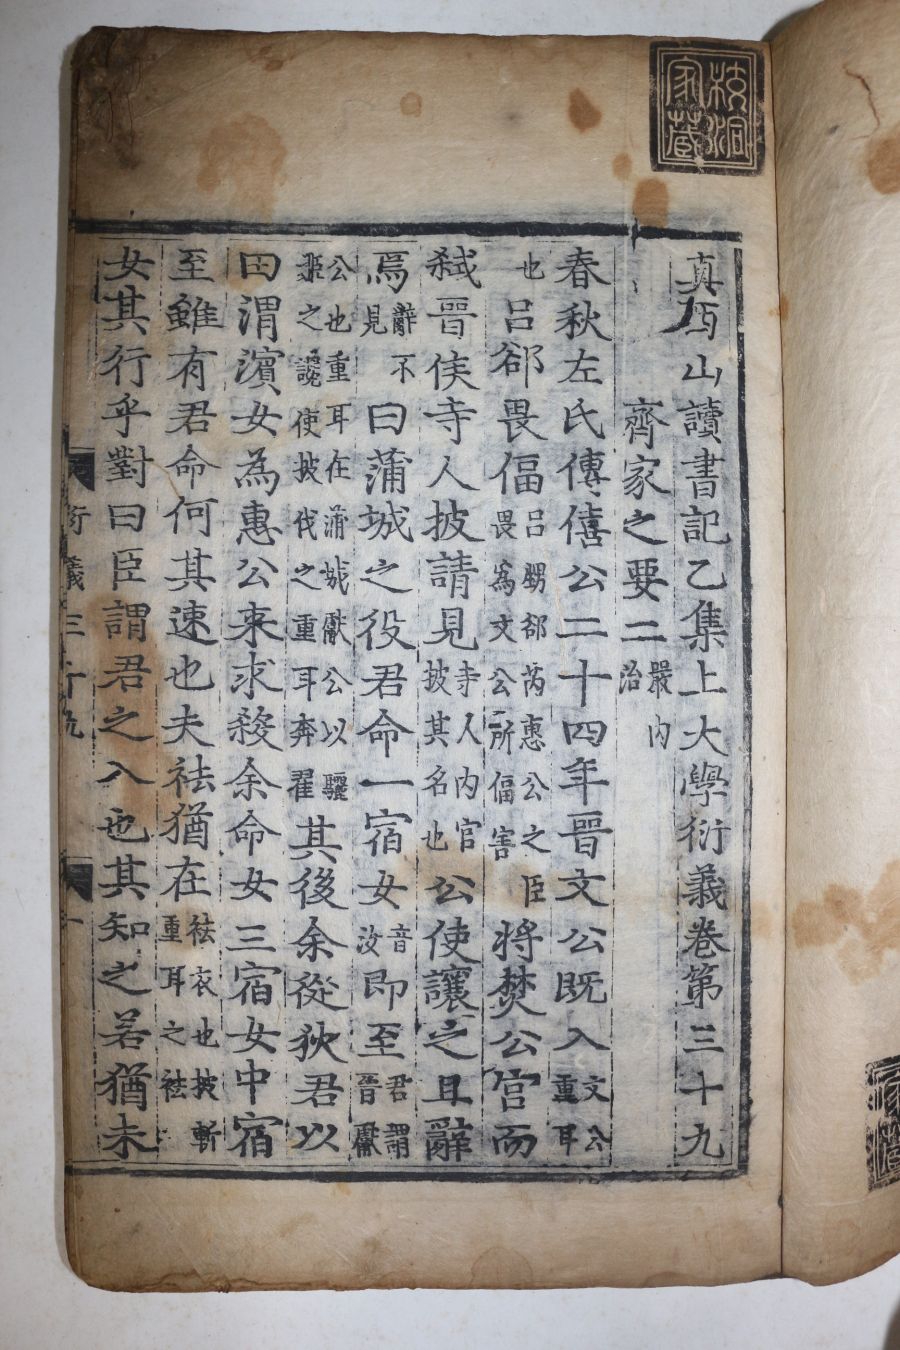 真西山讀書記乙集上大學衍義卷第三十九
齊家之要二嚴內治
春秋左氏傳僖公二十四年晉文公既入文公重耳
也呂郤畏偪呂甥郤芮惠公之臣畏爲文公所偪害將焚公宮而
弑晉侯寺人披請見寺人內官披其名也公使讓之且辭
焉辭不見曰蒲城之役君命一宿女音汝即至君謂晉獻
公也重耳在蒲城獻公以驪姬之讒使披伐之重耳奔翟其後余從狄君以
田渭濱女為惠公來求殺余命女三宿女中宿
至雖有君命何其速也夫袪猶在袪衣也披斬重耳之袪
女其行乎對曰臣謂君之入也其知之若猶未
衍義三十九
家藏